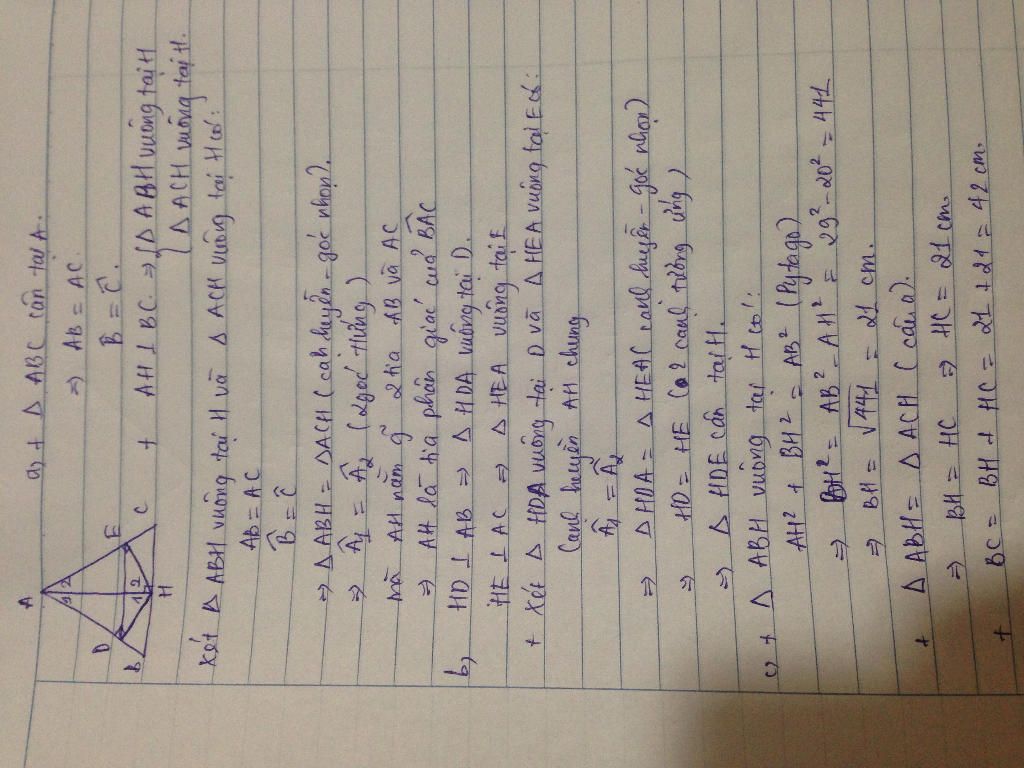 A
D
E
B
H
C
1 2
1 2
a, + Δ ABC cân tại A.
⇒ AB = AC.
B̂ = Ĉ.
+ AH ⊥ BC ⇒ { Δ ABH vuông tại H
{ Δ ACH vuông tại H.
Xét Δ ABH vuông tại H và Δ ACH vuông tại H có:
AB = AC
B̂ = Ĉ
⇒ Δ ABH = Δ ACH (cạnh huyền - góc nhọn).
⇒ Â1 = Â2 (2 góc tương ứng)
mà AH nằm giữa 2 tia AB và AC
⇒ AH là tia phân giác của BAC
b, HD ⊥ AB ⇒ Δ HDA vuông tại D.
HE ⊥ AC ⇒ Δ HEA vuông tại E
+ Xét Δ HDA vuông tại D và Δ HEA vuông tại E có:
Cạnh huyền AH chung
Â1 = Â2
⇒ Δ HDA = Δ HEA (cạnh huyền - góc nhọn)
⇒ HD = HE (2 cạnh tương ứng)
⇒ Δ HDE cân tại H.
c, + Δ ABH vuông tại H có:
AH² + BH² = AB² (Pytago)
⇒ BH² = AB² - AH² = 29² - 20² = 441
⇒ BH = √441 = 21 cm.
+ Δ ABH = Δ ACH (câu a).
⇒ BH = HC ⇒ HC = 21 cm.
+ BC = BH + HC = 21 + 21 = 42 cm.